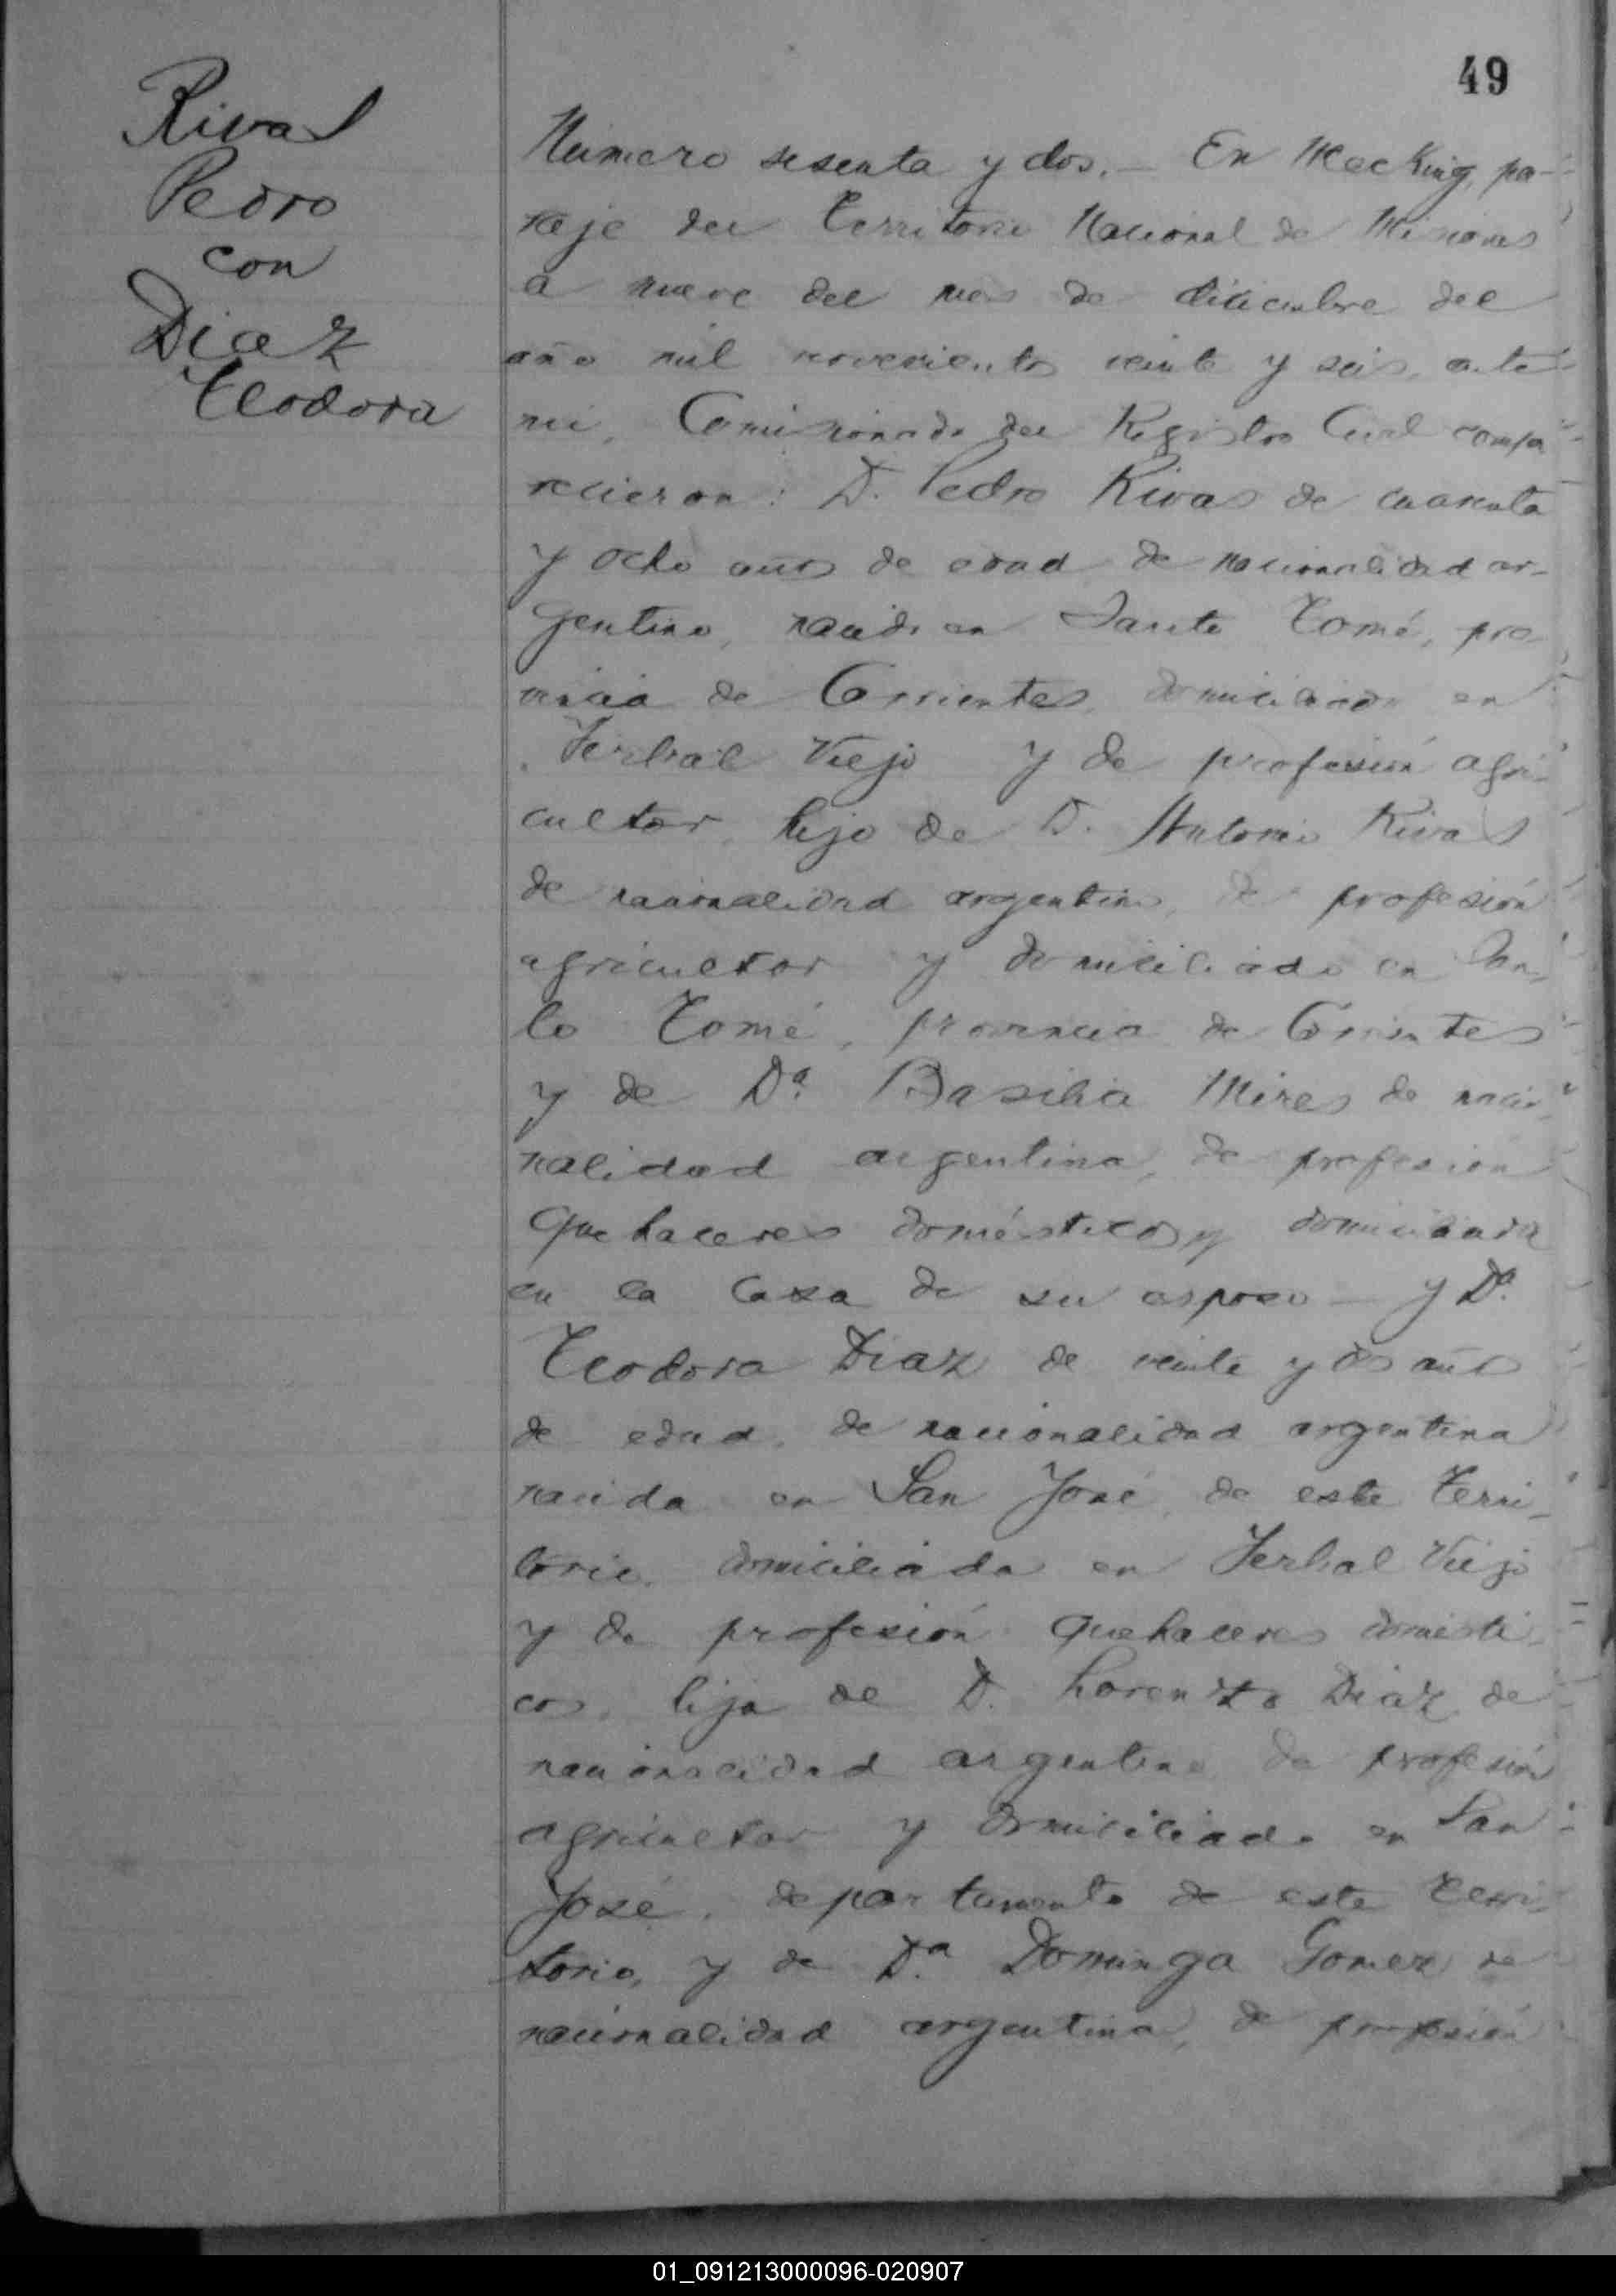 49
Rivas
Pedro
con
Diaz
Teodora
Número sesenta y dos. — En Mecking, pa-
raje del Territorio Nacional de Misiones
a nueve del mes de diciembre del
año mil novecientos veinte y seis, ante
mi, Comisionado del Registro Civil compa
recieron: D. Pedro Rivas de cuarenta
y ocho años de edad de nacionalidad ar-
gentino, nacido en Santo Tomé, pro-
vincia de Corrientes, domiciliado en
Yerbal Viejo y de profesión agri-
cultor, hijo de D. Antonio Rivas
de nacionalidad argentino, de profesión
agricultor y domiciliado en San-
to Tomé, provincia de Corrientes
y de Da. Basilia Mires de nacio-
nalidad argentina, de profesión
quehaceres domésticos y domiciliada
en la casa de su esposo — y Da.
Teodora Diaz de veinte y dos años
de edad, de nacionalidad argentina
nacida en San José, de este Terri-
torio, domiciliada en Yerbal Viejo
y de profesión quehaceres domésti-
cos, hija de D. Lorenzo Diaz de
nacionalidad argentino de profesión
agricultor y domiciliado en San
José, departamento de este Terri-
torio, y de Da. Dominga Gomez de
nacionalidad argentina, de profesión
01_091213000096-020907